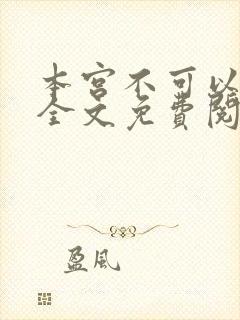 本宫不可以
全文免费阅
盈风